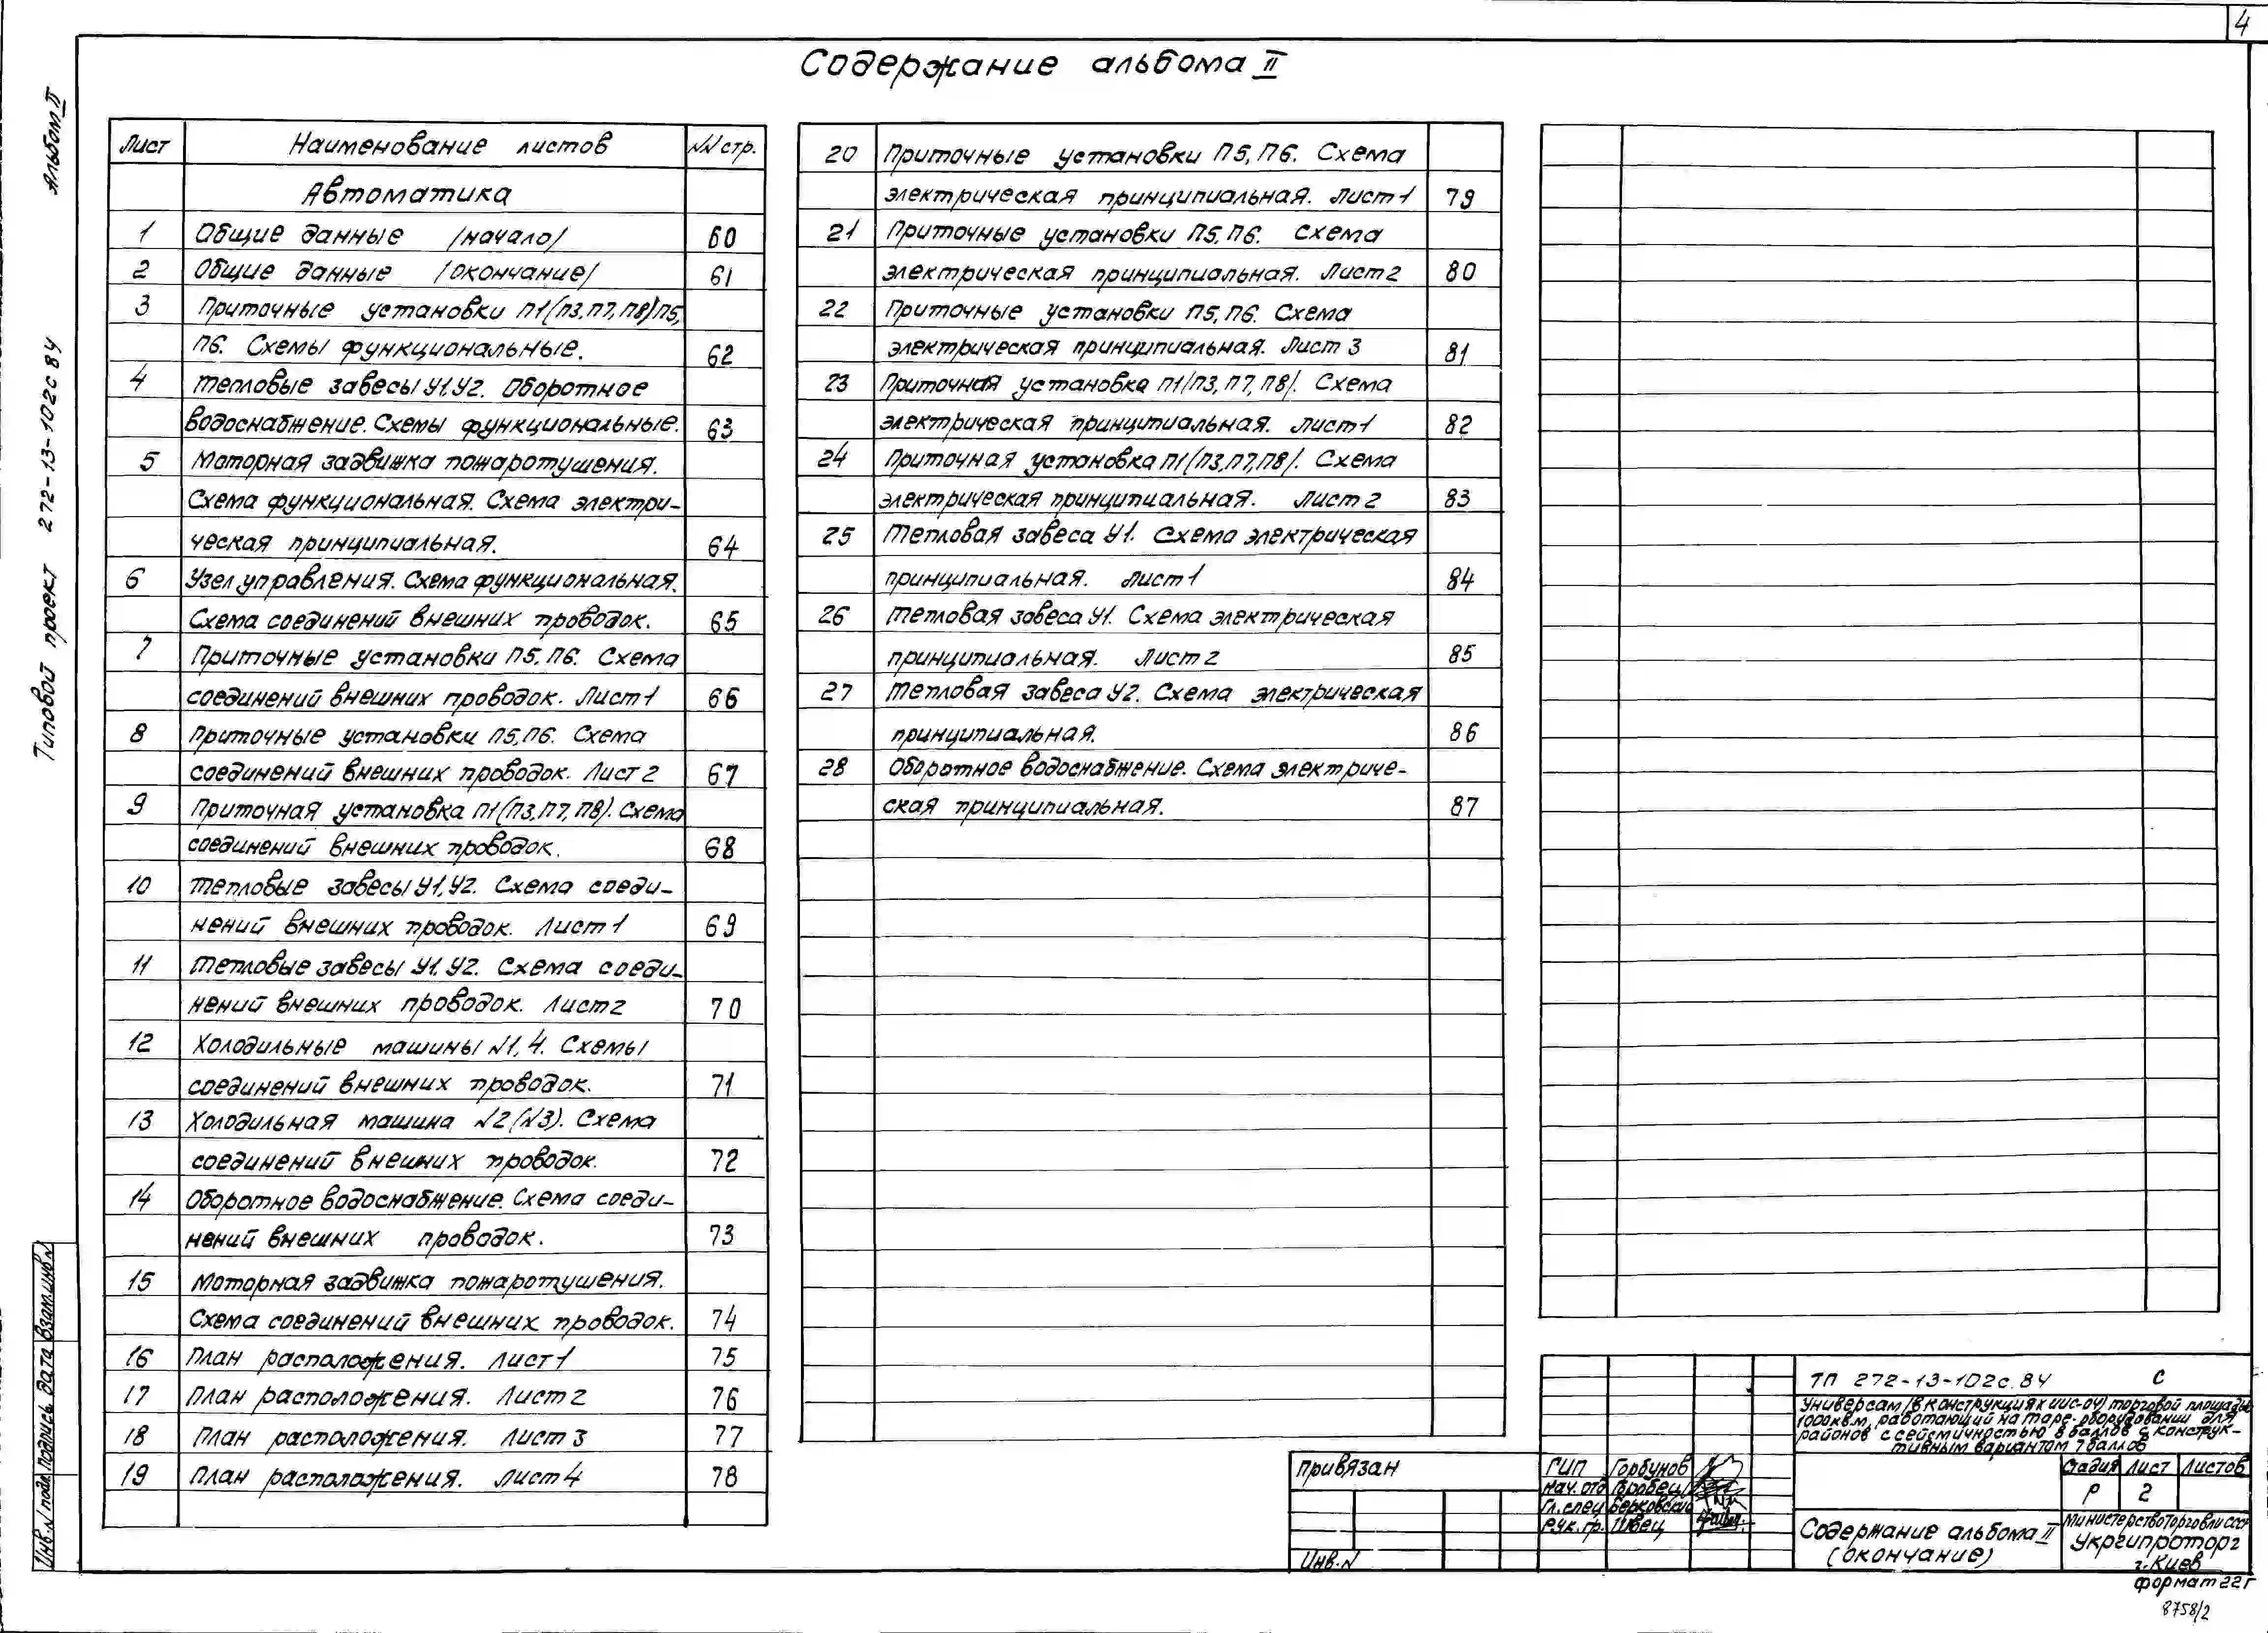 4
Содержание альбома II
Альбом II
Типовой проект 272-13-102с84
Лист Наименование листов NN стр.
Автоматика
1 Общие данные /начало/ 60
2 Общие данные /окончание/ 61
3 Приточные установки П1(П3,П7,П8)П5,
П6. Схемы функциональные. 62
4 Тепловые завесы У1.У2. Оборотное
водоснабжение. Схемы функциональные. 63
5 Моторная задвижка пожаротушения.
Схема функциональная. Схема электри-
ческая принципиальная. 64
6 Узел управления. Схема функциональная.
Схема соединений внешних проводок. 65
7 Приточные установки П5, П6. Схема
соединений внешних проводок. Лист 1 66
8 Приточные установки П5, П6. Схема
соединений внешних проводок. Лист 2 67
9 Приточная установка П1(П3,П7,П8). Схема
соединений внешних проводок. 68
10 Тепловые завесы У1,У2. Схема соеди-
нений внешних проводок. Лист 1 69
11 Тепловые завесы У1.У2. Схема соеди-
нений внешних проводок. Лист 2 70
12 Холодильные машины N1, 4. Схемы
соединений внешних проводок. 71
13 Холодильная машина N2(N3). Схема
соединений внешних проводок. 72
14 Оборотное водоснабжение. Схема соеди-
нений внешних проводок. 73
15 Моторная задвижка пожаротушения.
Схема соединений внешних проводок. 74
16 План расположения. Лист 1 75
17 План расположения. Лист 2 76
18 План расположения. Лист 3 77
19 План расположения. Лист 4 78
20 Приточные установки П5, П6. Схема
электрическая принципиальная. Лист 1 79
21 Приточные установки П5, П6. Схема
электрическая принципиальная. Лист 2 80
22 Приточные установки П5, П6. Схема
электрическая принципиальная. Лист 3 81
23 Приточная установка П1/П3, П7, П8/. Схема
электрическая принципиальная. Лист 1 82
24 Приточная установка П1(П3,П7,П8/. Схема
электрическая принципиальная. Лист 2 83
25 Тепловая завеса У1. Схема электрическая
принципиальная. Лист 1 84
26 Тепловая завеса У1. Схема электрическая
принципиальная. Лист 2 85
27 Тепловая завеса У2. Схема электрическая
принципиальная. 86
28 Оборотное водоснабжение. Схема электриче-
ская принципиальная. 87
Инв. N подл. Подпись дата Взам.инв.N
Привязан
Инв. N
ГИП Горбунов
Нач. отд Воробец
Гл. спец Берковский
Рук. гр. Швец
ТП 272-13-102с.84 С
Универсам (в конструкциях ИИС-04) торговой площадью
1000кв.м, работающий на таре-оборудовании для
районов с сейсмичностью 8 баллов с конструк-
тивным вариантом 7 баллов
Стадия Лист Листов
Р 2
Содержание альбома II
(окончание)
Министерство торговли СССР
Укргипроторг
г. Киев
формат 22Г
8758/2